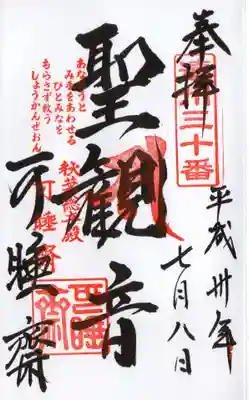 奉拝
三十番
平成卅年
七月八日
聖観音
あなとうと
みてをあわせる
ひとみなを
もらさず救う
しょうかんぜおん
秋葉総本殿
可睡斎
可睡斎